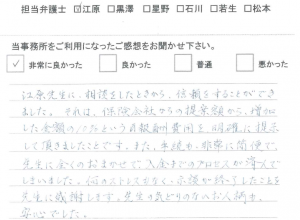 担当弁護士 ☑江原 □黒澤 □星野 □石川 □若生 □松本
当事務所をご利用になったご感想をお聞かせ下さい。
✓ 非常に良かった □ 良かった □ 普通 □ 悪かった
江原先生に、相談をしたときから、信頼をすることができ
ました。それは、保険会社からの提案額から、増加
した金額の 有料という報酬費用を、明確に提示
して頂きましたことです。また、手続も非常に簡便で、
先生に全くのおまかせで入金までのプロセスが済んで
しまいました。何のストレスもなく、示談が終了したことを
先生に感謝します。先生の気どりのないお人柄も、
安心でした。